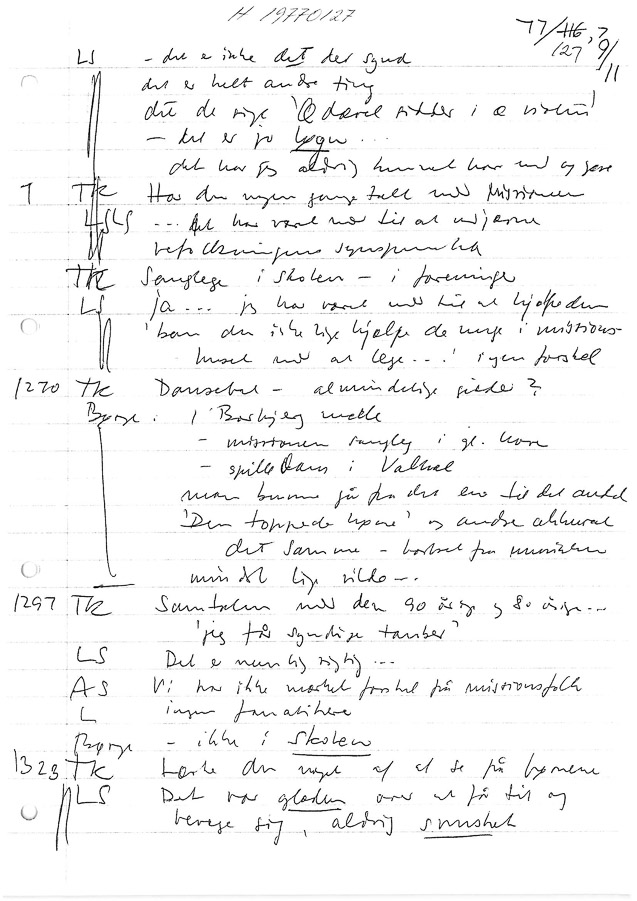 H 19770127
77/116, ?
127 9/11
LS - det e ikke det der synd
det er helt andre ting
det de sige 'Q dævel sidder i æ violin'
- det er jo løgn ...
det har jeg aldrig kunnet have med og gøre
T TK Har du nogen gange talt med Missionen
LS ... det har været med til at udjævne
befolkningens synspunkter
TK Sanglege i skolen - i foreninge
LS ja ... jeg har været med til at hjælpe dem
'kan du ikke lige hjælpe de unge i missions-
huset med at lege ...' ingen forskel
1270 TK Dansebal - almindelige gilder?
Børge : I Borbjerg mølle
- missionen sangleg i gl. kone
- spille Dans i Valhal
man kunne gå fra det ene til det andet
'Den toppede høne' og andre akkurat
det samme - bortset fra musikken
mindst lige vilde ...
1297 TK Samtalen med den 90 årige og 80 årige ...
'jeg får syndige tanker'
LS Det e nemlig rigtig ...
AS Vi har ikke mærket forskel på missionsfolk
L ingen fanatikere
Børge - ikke i skolen
1323 TK Lærte du noget af at se på børnene
LS Det var glæden over at få til og
bevæge sig, aldrig smusket